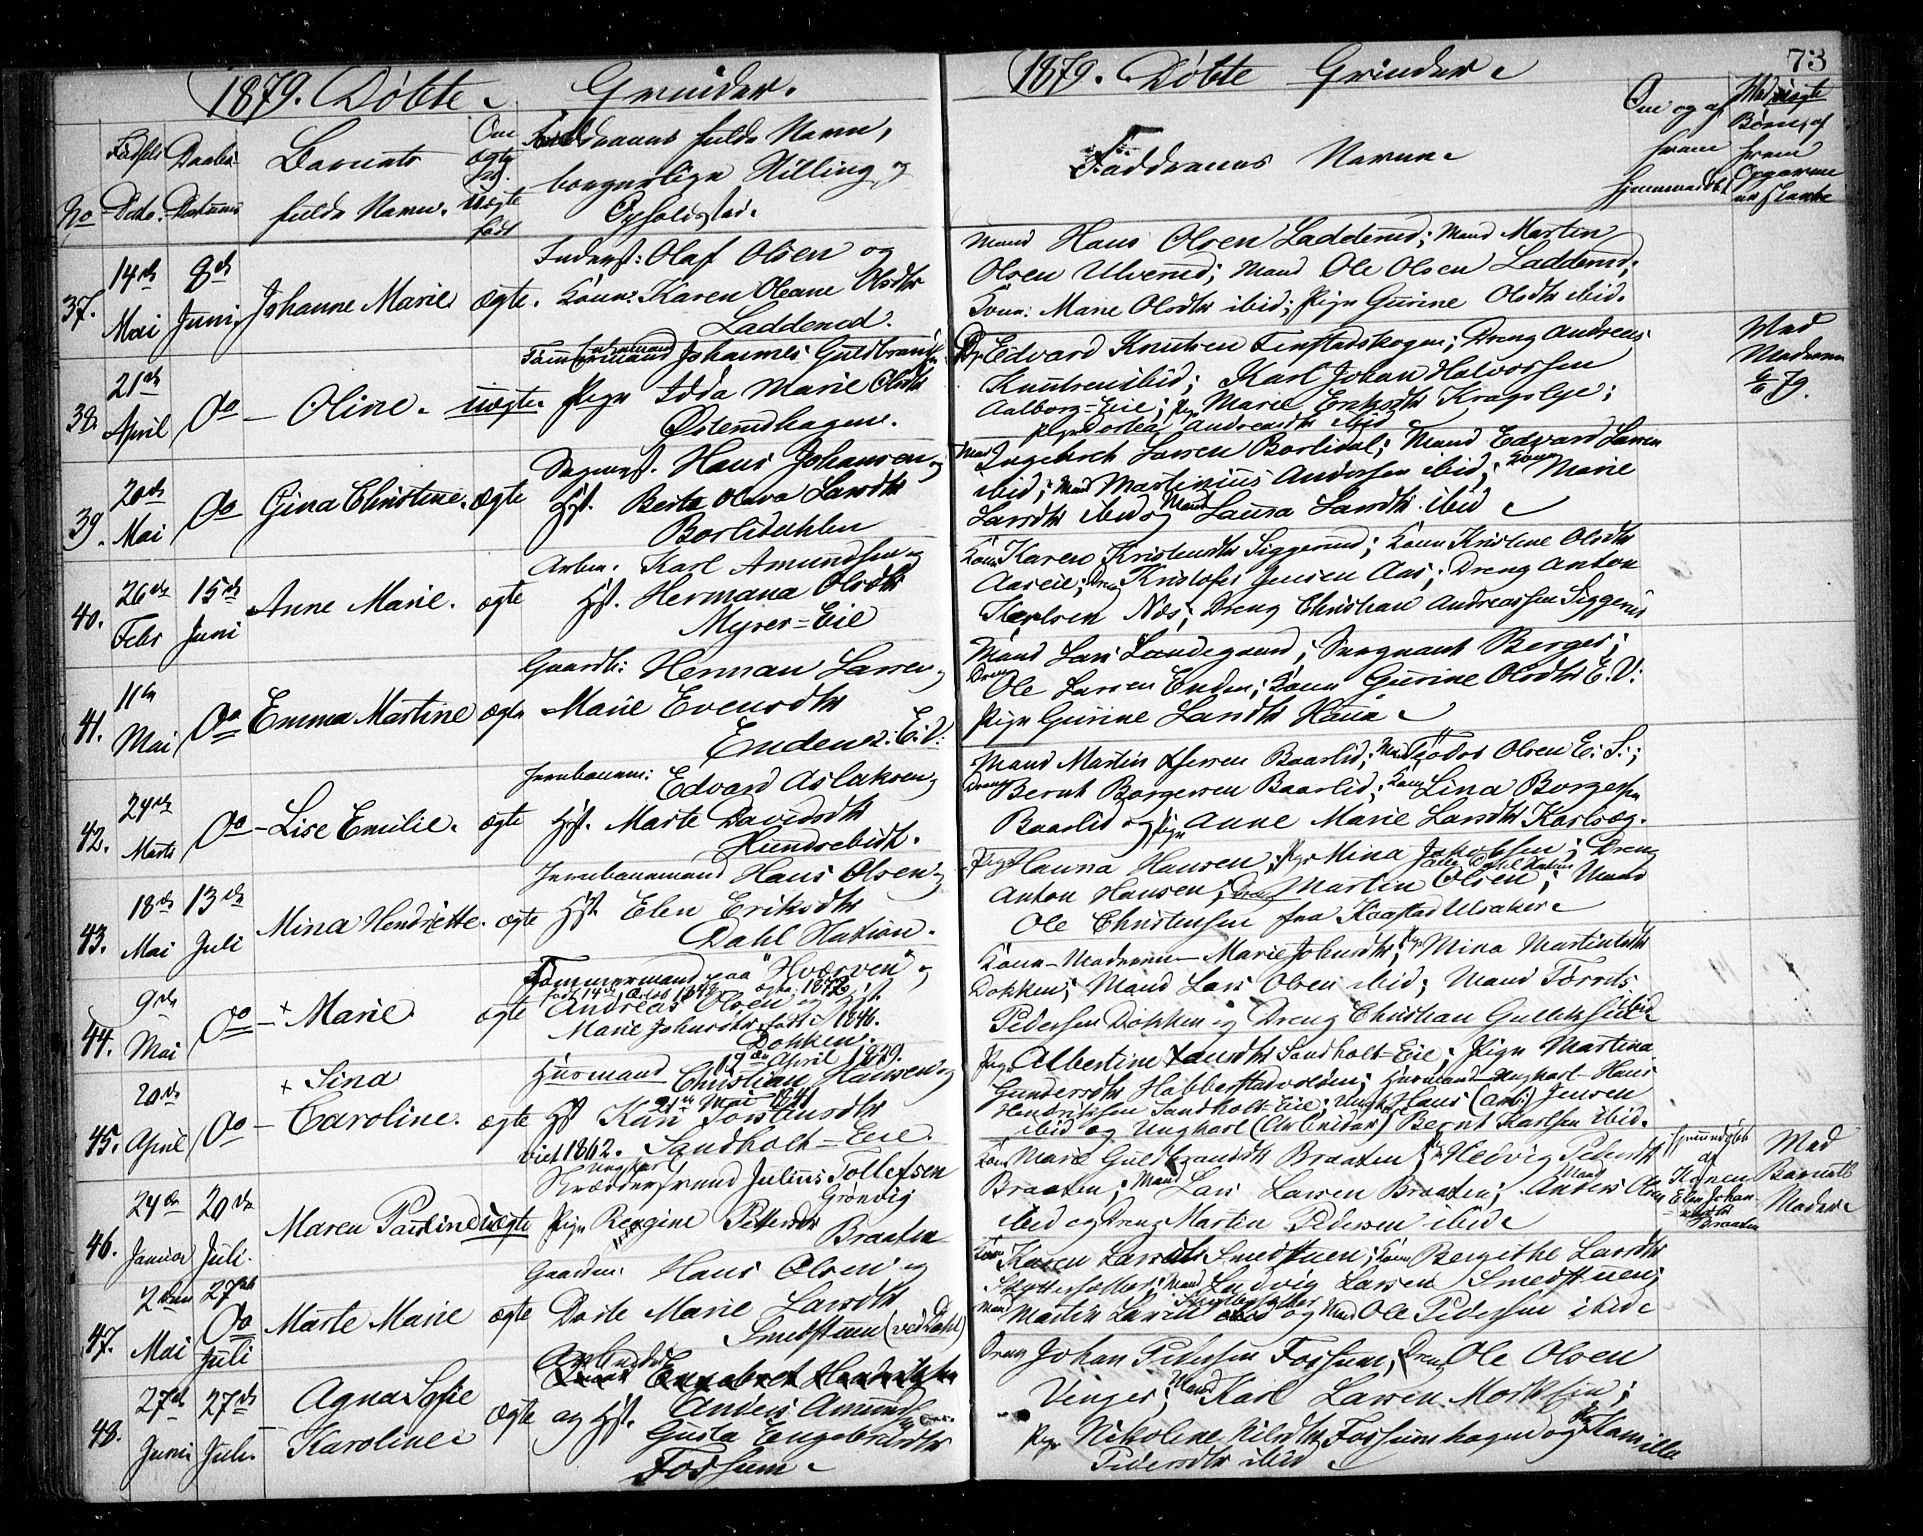 1879. Døbte Grinder.
No
Fødsels Dato.
Daabs Datum
Barnets fulde Navn.
Om ægte ell. uægte født
Forældrenes fulde Navn, borgerlige Stilling og Opholdssted.
37.
14de Mai
8de Juni
Johanne Marie
ægte.
Inderst: Olaf Olsen og
Kone: Karen Oleane Olsdtr
Ladderud.
38.
21de April
Do
Oline.
uægte.
Tømmermand Johannes Guldbrandsen
Pige Idda Marie Olsdtr
Østerudhagen.
39.
20de Mai
Do
Gina Christine.
ægte
Hans Johansen og
Hst. Berte Olava Larsdtr
Borlidahlen
40.
26de Febr
15de Juni
Anne Marie.
ægte
Arbm. Karl Amundsen og
Hst. Hermana Olsdtr
Myrer=Eie
41.
11te Mai
Do
Emma Martine
ægte
Gaardb: Herman Larsen og
Marie Evensdtr
Enden E. V:
42.
24de Marts
Do
Lise Emilie.
ægte
Jernbanem: Edvard Aslaksen og
Hst. Marte Davidsdtr
Hundsebidt.
43.
18de Mai
13de Juli
Mina Hendriette.
ægte
Jernbanemand Hans Olsen og
Hst. Elen Eriksdtr
Dahl Station.
44.
9de Mai
Do
+ Marie
ægte
Tømmermand paa "Hværven" og
Andreas Olsen og Hst.
Marie Johnsdtr født 1846.
Dokken.
45.
20de April
Do
+ Sina
Caroline.
ægte
12te April 1829.
Husmand Christian Hansen og
21de Mai 1841
Hst Kari Torstensdtr
viet 1862. Sandholt=Eie.
46.
24de Januar
20de Juli.
Maren Pauline
uægte
Ungkarl
Skrædersvend Julius Tollefsen
Grønvig
Pige Regine Pettersdtr
Braaten
47.
2den Mai
27de Do Juli
Marte Marie
ægte
Gaardm: Hans Olsen og
Dorte Marie Larsdtr
Smedstuen (ved Dahl)
48.
27de Juni
27de Juli.
Agna Sofie
Karoline
ægte
Arbeider
Anders Amundsen
og Hst.
Gusta Engebretsdtr
Fossum.
1879. Døbte Grinder.
73
Faddrenes Navne.
Om og af hvem hjemmedøbt
Med uægte Børn, af hvem Opgavene ere skeede
Mand Hans Olsen Ladderud; Mand Martin
Olsen Ulverud; Mand Ole Olsen Ladderud;
Kone: Marie Olsdtr ibid; Pige Gurine Olsdtr ibid.
Dr. Edvard Knutsen Finstadskogen; Dreng Andreas
Knutsen ibid; Karl Johan Halvorsen
Aalborg=Eie; Pige Marie Eriksdtr Kragslye;
Pige Dortea Andreasdtr ibid
Med
Moderen
79.
Mand Ingebrek Larsen Borlidal; Mand Edvard Larsen
ibid; Mand Martinius Andersen ibid; Kone Marie
Larsdtr ibid og Laura Larsdtr ibid
Kone Karen Kristensdtr Siggerud; Kone Kristine Olsdtr
Aaseie; Dreng Kristofer Jensen Aas; Dreng Anton
Karlsen Næs; Dreng Christian Andreassen Siggerud
Mand Lars Landegaard; Sergeant Berger;
Dreng Ole Larsen Enden; Kone Gurine Olsdtr E. V:
Pige Gurine Larsdtr Haua
Mand Martin Iversen Baarlid; Mand Tjodor Olsen E. S.;
Dreng Bernt Borgersen Baarlid; Kone Lina Borgesen
Baarlid og Pige Anne Marie Larsdtr Karlsæg.
Pige Hanna Hansen; Pige Mina Jakobsen; Dreng
alle Dahl Station
Anton Hansen; Dreng Martin Olsen; Mand
Ole Christensen fra Kaastad Ulsaker
Kone Moderen Marie Johnsdtr; Pige Mina Martinsdtr
Dokken; Mand Lars Olsen ibid; Mand Tørris
Pedersen Dokken og Dreng Christian Gulliksen ibid
Pige Albertine Larsdtr Sandholt=Eie; Pige Martina
Gundersdtr Habberstadvolden; Husmand Ungkarl Hans
Hendriksen Sandholt=Eie; Ungk Hans (Arb:) Jensen
ibid og Ungkarl (Arbeider) Bernt Karlsen ibid.
Kone Marie Guldbrandsdtr Braaten; Pige Hedvig Pedersdtr
Braaten; Mand Lars Larsen Braaten; Mand Anders Olsen
ibid og Dreng Martin Pedersen ibid
hjemmedøbt
af
Konen
Elen Johan-
nesdtr
Braaten
Med
Barnets
Moder
Kone Karen Larsdtr Smedstuen; Kone Bergithe Larsdtr
Skyttersætter; Mand Ludvig Larsen Smedstuen;
Mand Martin Larsen Skyttersætter og Mand Ole Pedersen ibid
Dreng Johan Pedersen Fossum; Dreng Ole Olsen
Vinger; Mand Karl Larsen Morksjin;
Pige Nikoline Nilsdtr Fossumhagen og Pige Kamilla
Pedersdtr ibid